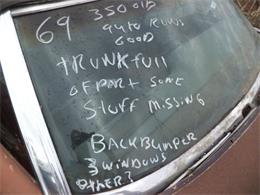 69 350 OLD
auto RUNS
GOOD
tRUNK full
OF PART SOME
Stuff missing
BACK BUMPER
3 WINDOWS
OTHER?